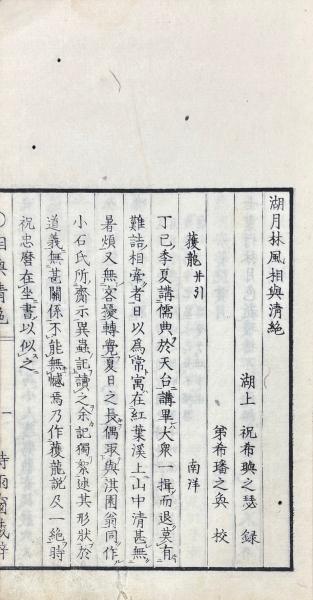 湖月抹風相與清絶
湖上 祝希映之瑟 錄
弟希璠之奐 校
蒦龍 并引
南洋
丁巳季夏講儒典於天台講畢大衆一揖而退莫有
難詰相牽者日以為常寓在紅葉溪上山中清甚無
暑煩又無客擾轉覺夏日之長偶取與淇園翁同作
小石氏所齎示異蟲記讀之余記獨畧述其形狀於
道義無甚關係不能無憾焉乃作蒦龍説及一絶時
祝忠曆在坐書以似之
相與清絶
一